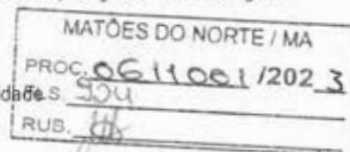 MATÕES DO NORTE / MA
PROC. 0611001 /2023
dade S.
RUB.